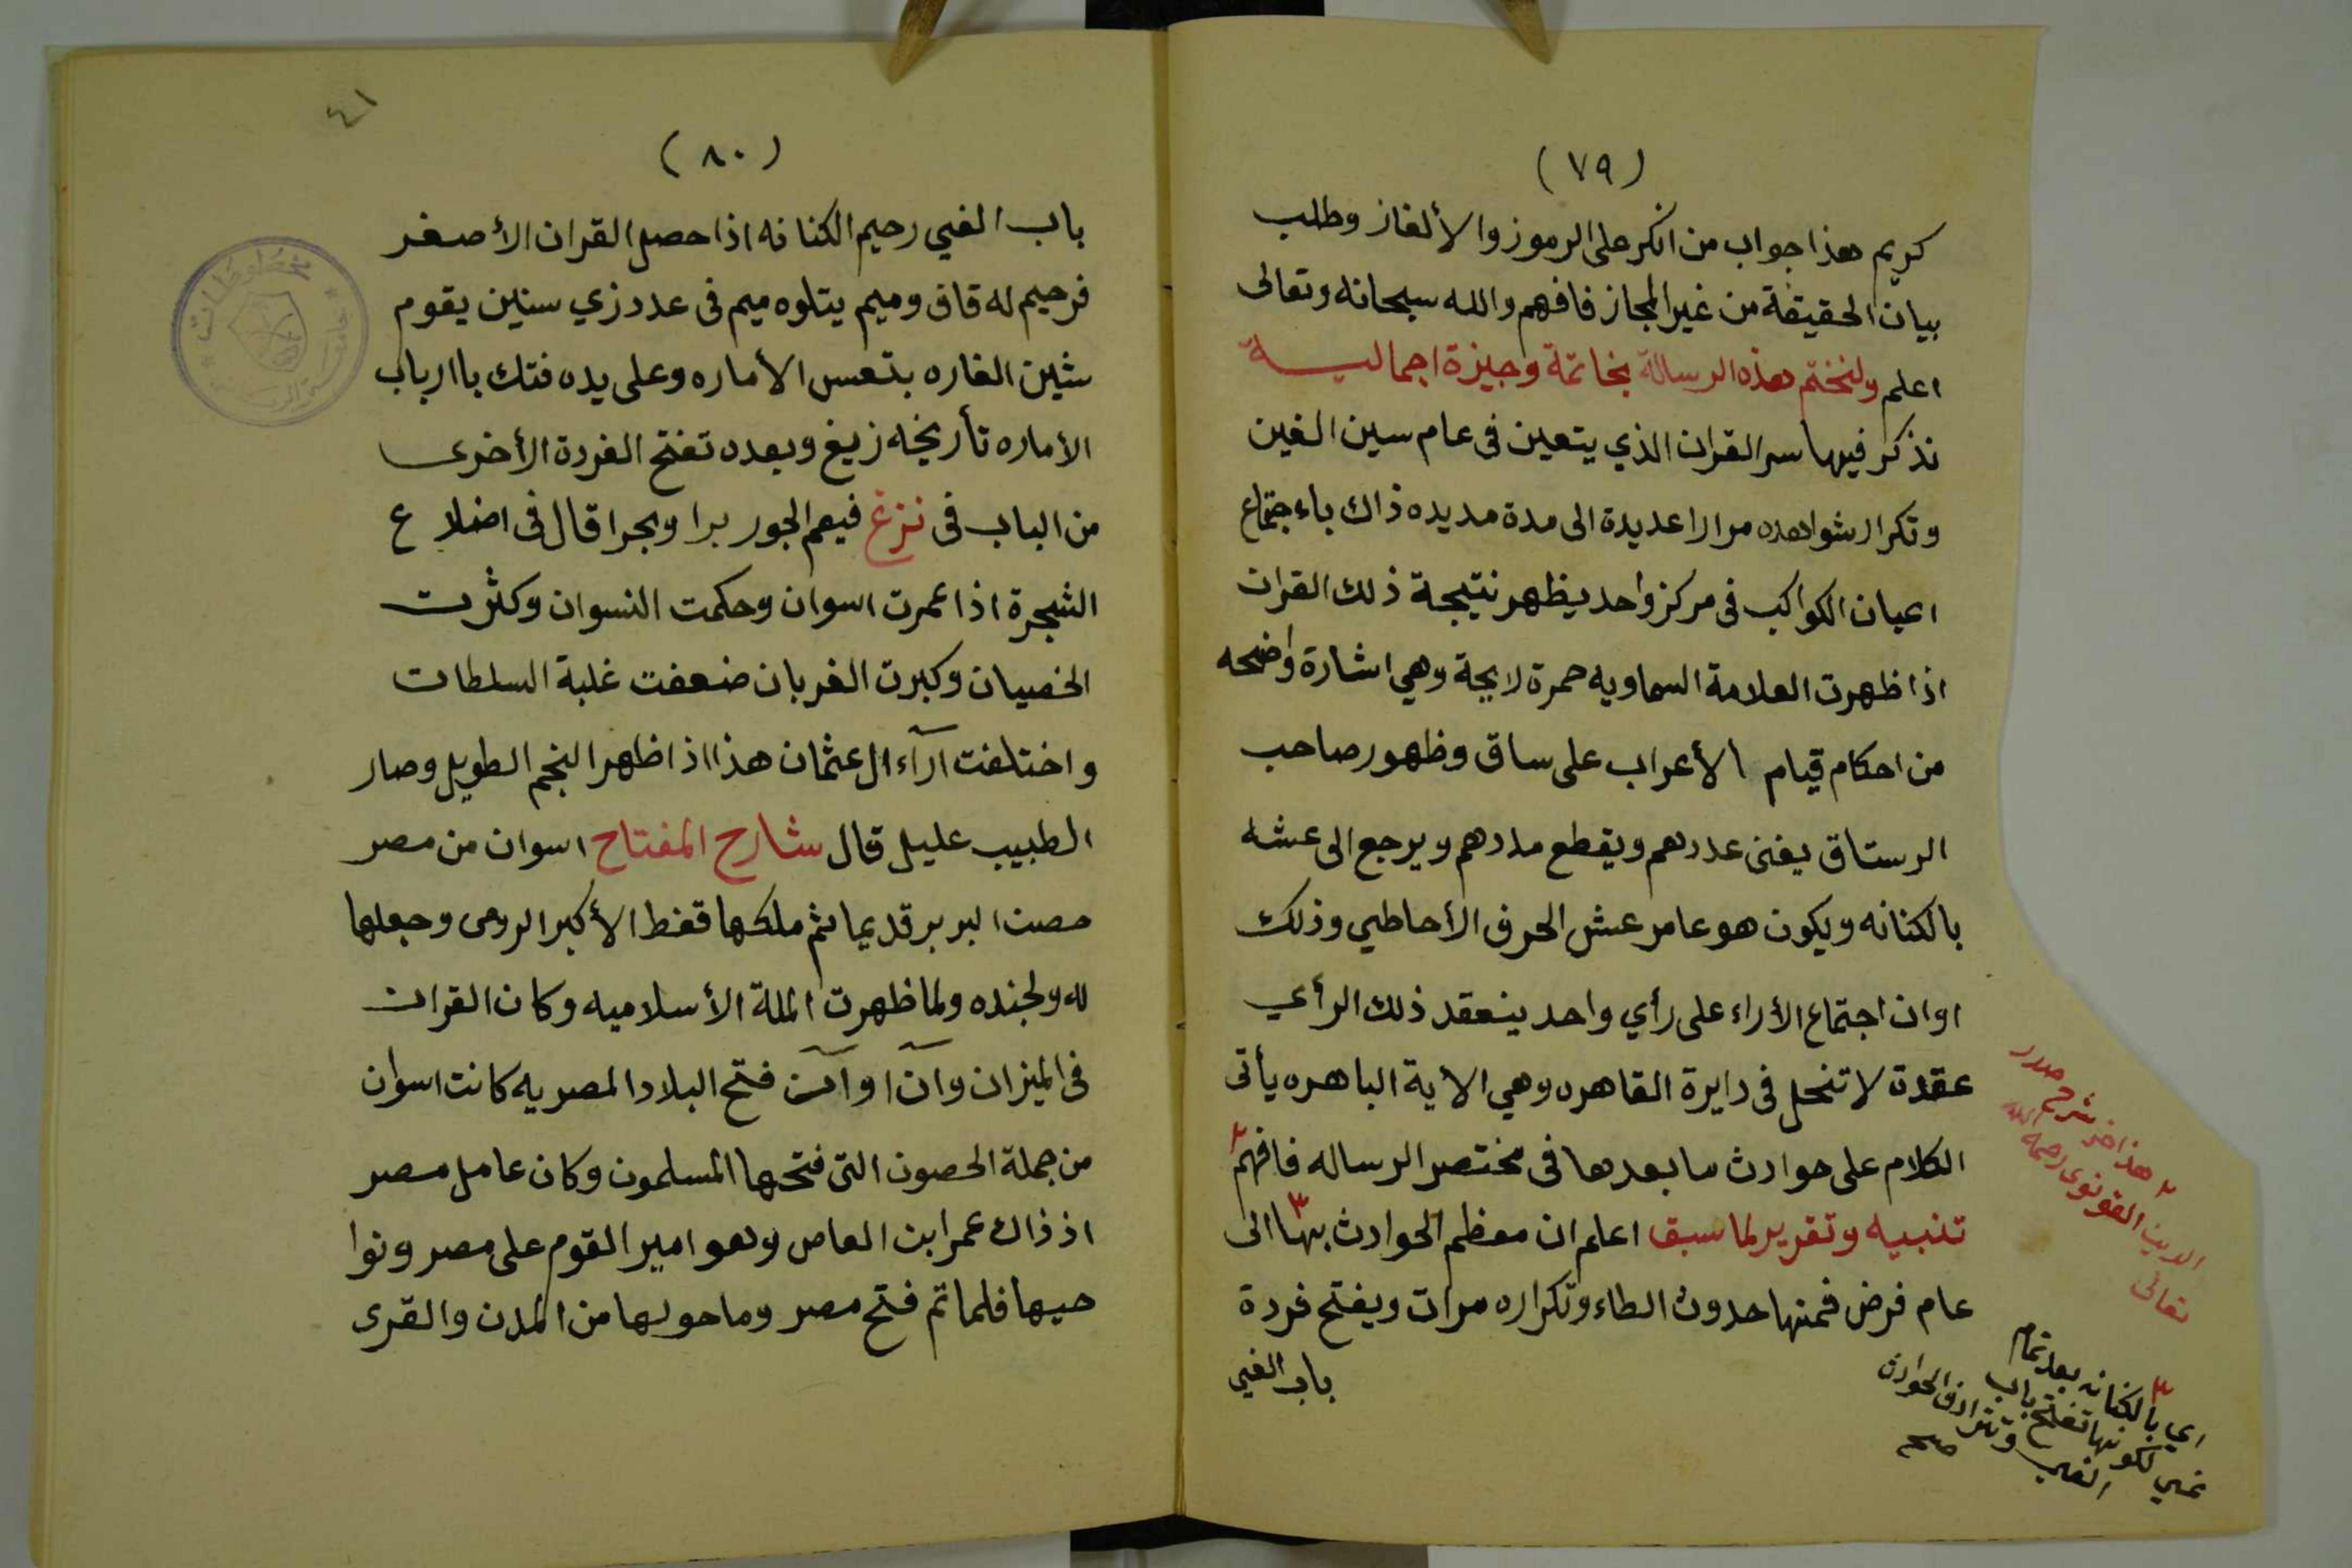 (٧٩)
كريم هذا جواب من انكر على الرموز والألغاز وطلب
بيان الحقيقة من غير المجاز فافهم والله سبحانه وتعالى
اعلم ولنختم هذه الرسالة بخاتمة وجيزة اجماليـــة
نذكر فيها سر القران الذي يتعين فى عام سين الغين
وتكرار شواهده مرارا عديدة الى مدة مديده ذاك باءجتماع
اعيان الكواكب فى مركز واحد يظهر نتيجة ذلك القران
اذا ظهرت العلامة السماويه حمرة لايحة وهي اشارة واضحه
من احكام قيام الأعراب على ساق وظهور صاحب
الرستاق يفنى عددهم ويقطع مددهم ويرجع الى عشه
بالكنانه ويكون هو عامر عش الحرف الأحاطي وذلك
اوان اجتماع الأراء على رأي واحد ينعقد ذلك الرأي
عقدة لا تنحل فى دايرة القاهره وهي الاية الباهره يأتى
الكلام على حوادث ما بعدها فى مختصر الرساله فافهم ٢
تنبيه وتقرير لما سبق اعلم ان معظم الحوادث بها ٣ الى
عام فرض فمنها حدوث الطاء وتكراره مرات ويفتح فردة
باب الغبي
٢ هذا اخر شرح صدر
الدين القونوى رحمه الله
تعالى
٣
اي بالكنانه بعد تمام
لكونها تفتح باب
الغبي وتترادف الحوادث
صح
٤١
(٨٠)
باب الغبي رحيم الكنانه اذا حصل القران الأصغر
فرحيم له قاف وميم يتلوه ميم فى عدد زي سنين يقوم
شين الغاره بتعس الأماره وعلى يده فتك باارباب
الأماره تأريخه زيغ وبعده تفتح الفردة الأخرى
من الباب فى نزغ فيعم الجور برا وبحرا قال فى اضلاع
الشجرة اذا عمرت اسوان وحكمت النسوان وكثرت
الخصيان وكبرت الغربان ضعفت غلبة السلطات
واختلفت آراء ال عثمان هذا اذا ظهر النجم الطويل وصار
الطبيب عليل قال شارح المفتاح اسوان من مصر
حصن البربر قديما ثم ملكها قفط الأكبر الرومى وجعلها
له ولجنده ولما ظهرت الملة الأسلاميه وكان القران
فى الميزان وآن اوآن فتح البلاد المصريه كانت اسوان
من جملة الحصون التى فتحها المسلمون وكان عامل مصر
اذ ذاك عمر ابن العاص وهو امير القوم على مصر ونوا
حيها فلما تم فتح مصر وما حولها من المدن والقرى
مخطوطات